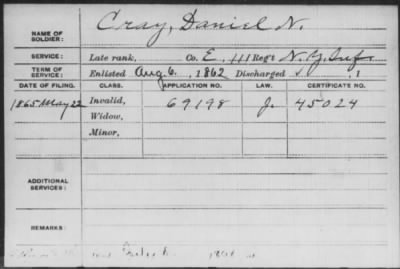 NAME OF SOLDIER: Cray, Daniel N.
SERVICE: Late rank, Co. E, 111 Reg't N. Y. Inf.
TERM OF SERVICE: Enlisted Aug. 6, 1862 Discharged , 1
DATE OF FILING. CLASS. APPLICATION NO. LAW. CERTIFICATE NO.
1865 May 22 Invalid, 69198 J. 45024
Widow,
Minor,
ADDITIONAL SERVICES:
REMARKS: